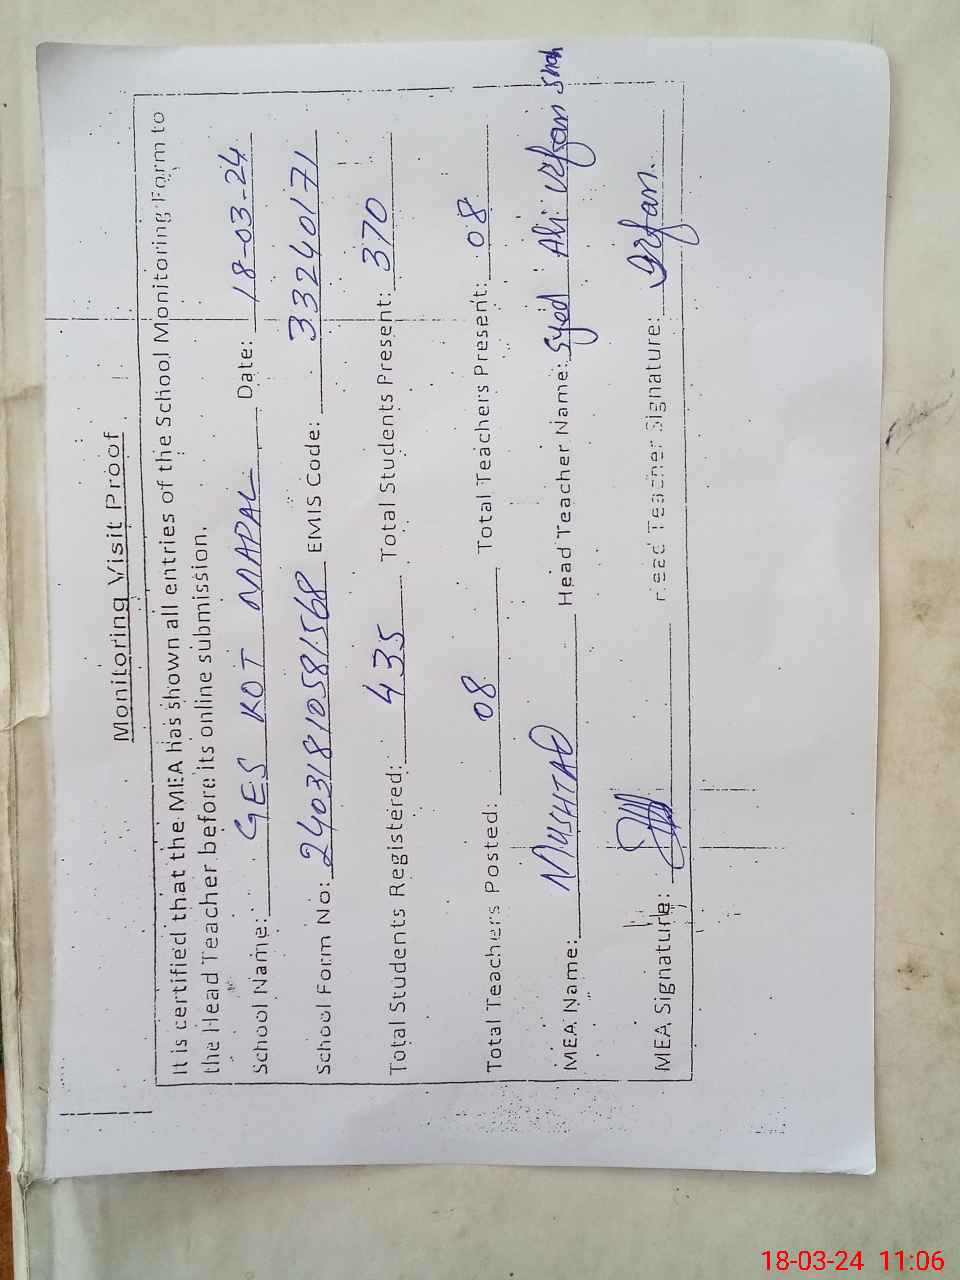 Monitoring Visit Proof
It is certified that the MEA has shown all entries of the School Monitoring Form to
the Head Teacher before its online submission.
School Name: GES KOT MAPAL Date: 18-03-24
School Form No: 24031810581568 EMIS Code: 33240171
Total Students Registered: 435 Total Students Present: 370
Total Teachers Posted: 08 Total Teachers Present: 08
MEA Name: MUSHTAQ Head Teacher Name: Syed Ali Irfan Shah
MEA Signature: Head Teacher Signature: Irfan.
18-03-24 11:06